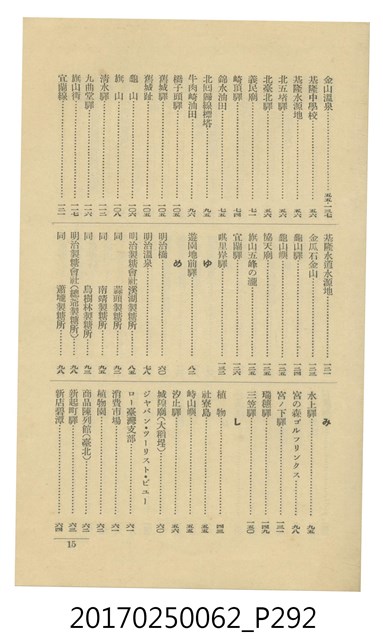 金山溫泉……五五、一二七
基隆中學校……五六
基隆水源地……五六
北五堵驛……五六
北臺北驛……六三
義民廟……七一
崎頂驛……七四
錦水油田……七五
北回歸線標塔……九五
牛肉崎油田……九六
橋子頭驛……一〇五
舊城驛……一〇五
舊城趾……一〇五
龜山……一〇六
旗山……一〇八
清水驛……一一二
九曲堂驛……一一六
旗山街……一一七
宜蘭線……一二一
基隆水道水源地……一二一
金瓜石金山
龜山驛
龜山廟
協天廟
旗山五峰の瀧
宜蘭驛
礁里岸驛
ゆ
遊園地前驛……八二
め
明治橋……六〇
明治溫泉……七八
明治製糖會社溪湖製糖所
同 蒜頭製糖所
同 南靖製糖所……九三
同 烏樹林製糖所……九三
明治製糖會社(總爺製糖所)……九八
同 蕭壠製糖所……九八
み
水上驛……九五
宮の森ゴルフリンクス……九八
宮ノ下驛……一三一
瑞穗驛……一四九
三笠驛……一五〇
し
植物……四三
社寮島……五五
崎山廟……五五
汐止驛……五六
城隍廟(大稻埕)……六〇
ジヤパン・ツーリスト・ビユー
ロー臺灣支部……六一
消費市場……六一
植物園……六二
商品陳列館(臺北)……六二
新起町驛……六三
新店碧潭……六四
15
20170250062_P292